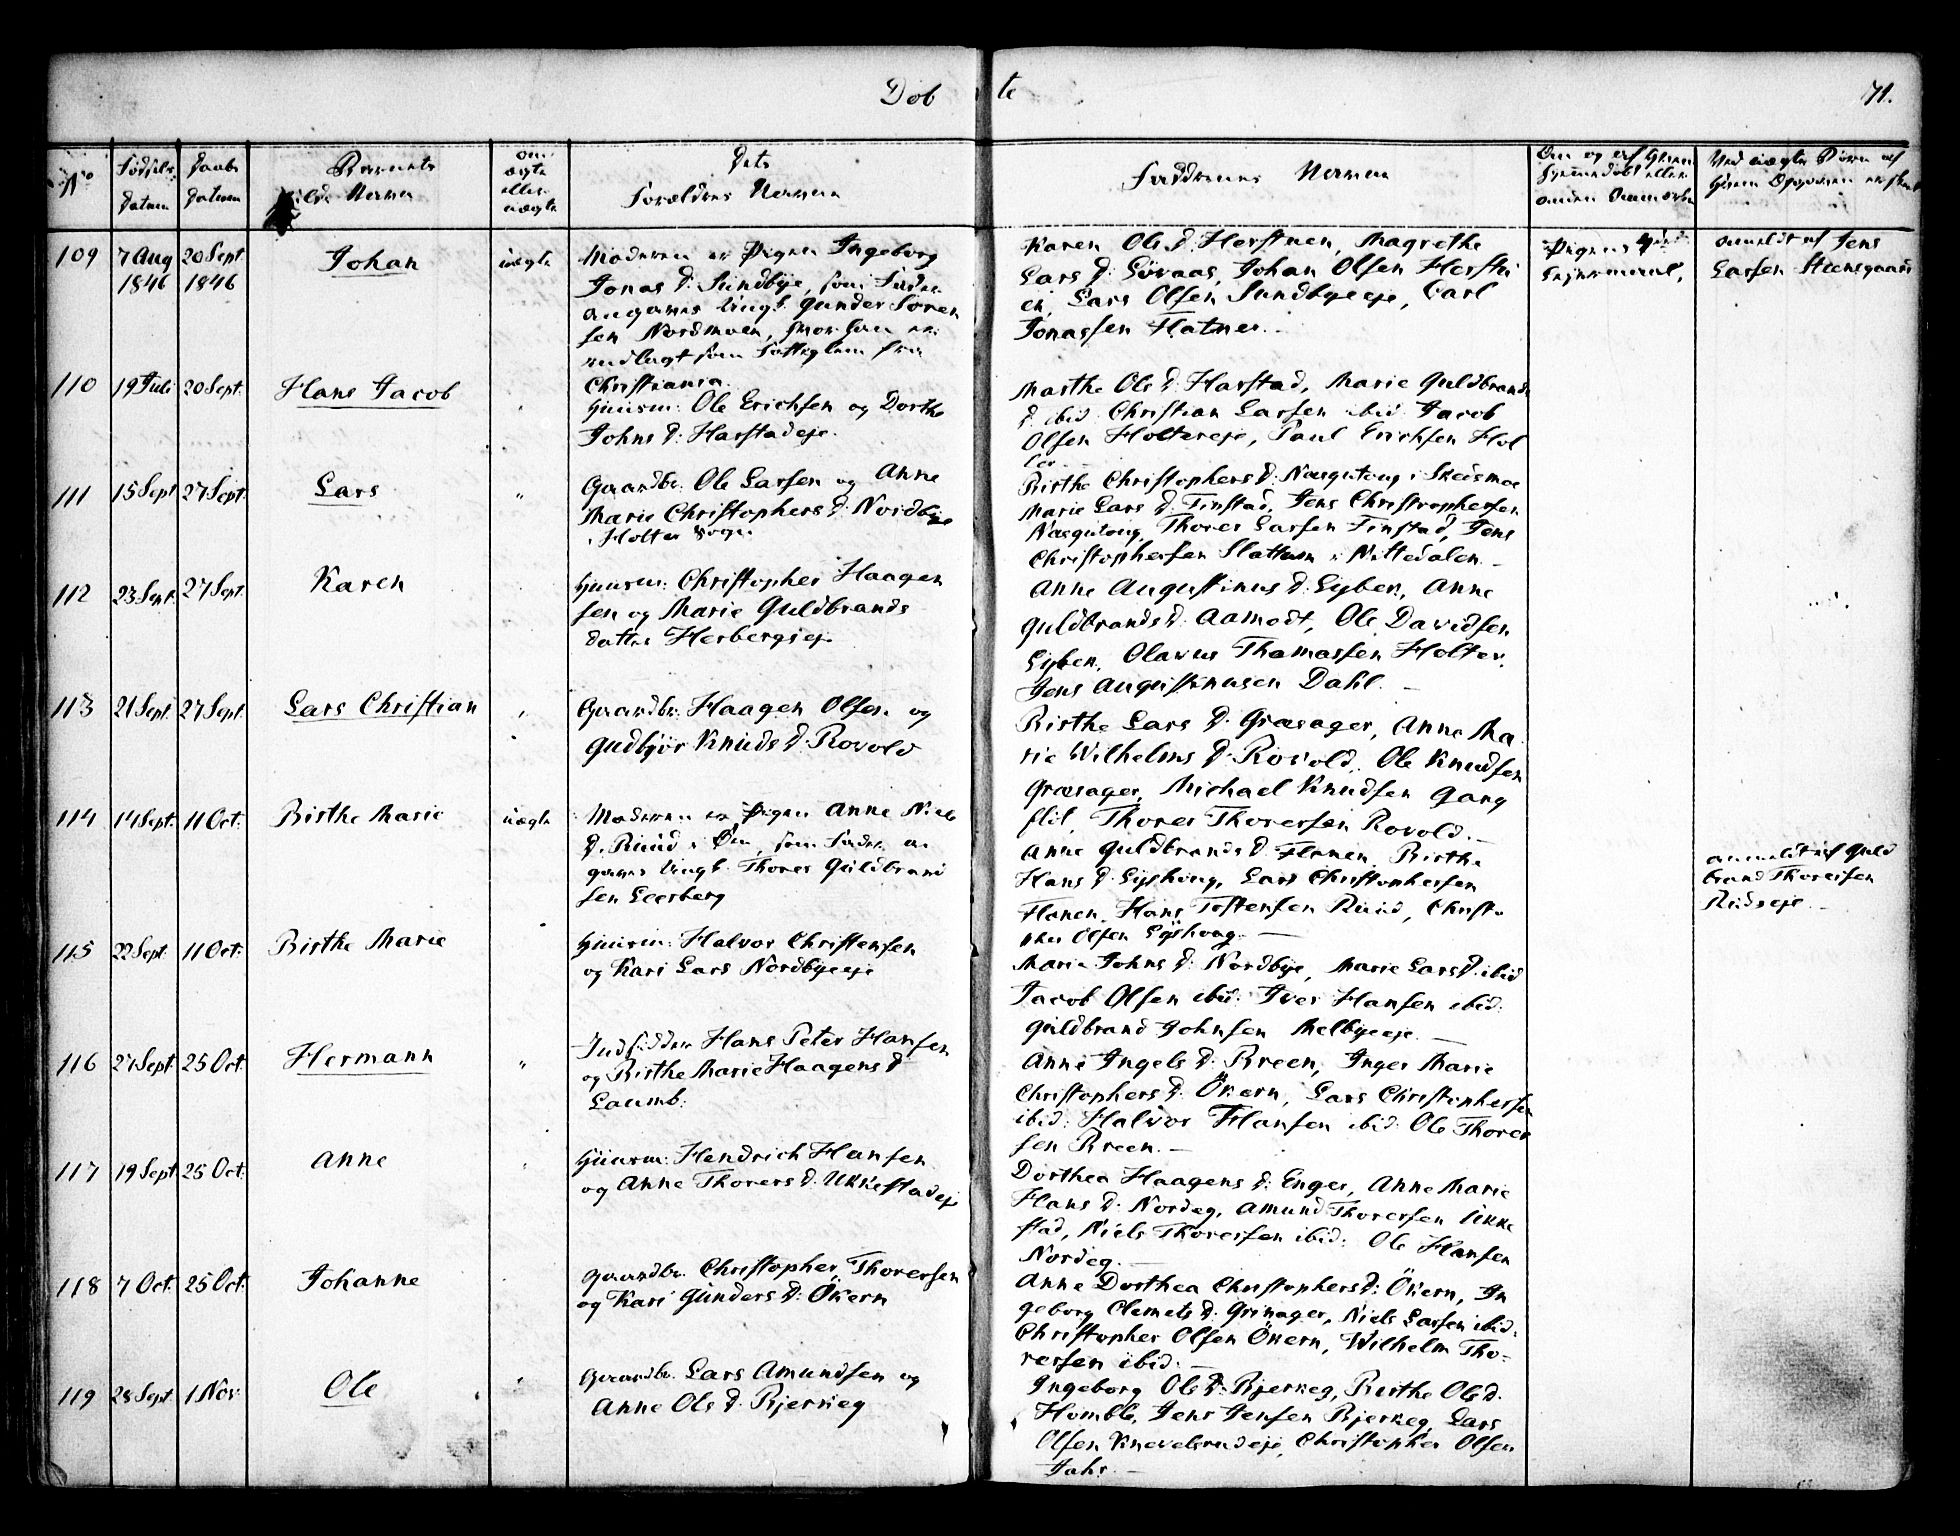 Døb te 71.
No
Fødsels Datum
Daabs Datum
Barnets fulde Navn
Om ægte eller uægte
Dets Forældres Navne
Faddernes Navne
Om og af hvem hjemmedøbt eller anden Anmærkn
Ved uægte Børn af hvem Opgaven er skeet
109 7 Aug 1846 20 Sept. 1846 Johan uægte
Moderen er Pigen Ingeborg
Jonas D: Sundbye, som Fader
angaves Ungk. Gunder Søren
sen Nordmoen, hvor han er
indlagt som
Christiania.
Karen Ols D: Herstuen, Magrethe
Lars D: Løvaas, Johan Olsen Herstu
en, Lars Olsen Sundbyeeje, Carl
Jonassen Flatner. —
Pigens
Leiermaal,
anmeldt af Jens
Larsen Steensgaard
110 19 Juli 20 Sept. Hans Jacob
Huusm: Ole Erichsen og Dorthe
Johns D: Harstadeje.
Marthe Ols D: Harstad, Marie Guldbrands
D: ibid: Christian Larsen ibid: Jacob
Olsen Holtereje, Paul Erichsen Hol
ter. —
111 15 Sept 27 Sept. Lars "
Gaardbr. Ole Larsen og Anne
Marie Christophers D: Nordbye
i Holter Sogn.
Birthe Christophers D: Nasgutong i Skedsmoe
Marie Lars D: Tinstad, Jens Christophersen
Nasgutong, Thorer Larsen Tinstad, Jens
Christophersen Slattum i Nittedalen. —
112 23 Sept. 27 Sept. Karen
Huusm: Christopher Haagen
sen og Marie Guldbrands
datter Herbergseje
Anne Augustinus D: Gyber, Anne
Guldbrands D: Aamodt, Ole Davidsen
Gyben, Olavus Thomassen Holter,
Jens Augustinusen Dahl. —
113 21 Sept. 27 Sept. Lars Christian "
Gaardbr. Haagen Olsen og
Gudbjør Knuds D: Rovold
Birthe Lars D: Græsager, Anne Ma
rie Wilhelms D: Rovold, Ole Knudsen
Græsager, Michael Knudsen Gang
flit, Thorer Thorersen Rovold. —
114 14 Sept. 11 Oct: Birthe Marie uægte
Moderen er Pigen Anne Niels
D. Ruud i Øen, som Fader an
gaves Ungk. Thorer Guldbrand
sen Leerberg
Anne Guldbrands D: Flanen, Birthe
Hans D: Gyshoug, Lars Christophersen
Flanen, Hans Tostensen Ruud, Christo
pher Olsen Gyshoug. —
anmeldt af Guld
brand Thorersen
Rudseje —
115 22 Sept. 11 Oct: Birthe Marie
Huusm: Halvor Christensen
og Kari Lars Nordbyeeje
Marie Johns D: Nordbye, Marie Lars D: ibid
Jacob Olsen ibid: Iver Hansen ibid:
Guldbrand Johnsen Melbyeeje. —
116 27 Sept. 25 Oct. Hermann "
Indsidder Hans Peter Hansen
og Birthe Marie Haagens D
Laumb.
Anne Ingels D: Breen, Inger Marie
Christophers D: Økern, Lars Christophersen
ibid: Halvor Hansen ibid: Ole Thorer
sen Breen. —
117 19 Sept 25 Oct: Anne
Huusm: Hendrich Hansen
og Anne Thorers D: Ukkestadeje
Dorthea Haagens D: Enger, Anne Marie
Hans D: Nordeg, Amund Thorersen Ukke
stad, Niels Thorersen ibid: Ole Hansen
Nordeg. —
118 7 Oct: 25 Oct: Johanne
Gaardbr. Christopher Thorersen
og Kari Gunders D: Økern
Anne Dorthea Christophers D: Økern, In
geborg Clemets D: Grinager, Niels Larsen ibid:
Christopher Olsen Økern, Wilhelm Tho-
rersen ibid: —
119 28 Sept. 1 Nov: Ole "
Gaardbr. Lars Amundsen og
Anne Ols D: Bjerkeg
Ingeborg Ols D: Bjerkeg, Berthe Ols D.
Homble, Jens Jensen Bjerkeg, Lars
Olsen Knevelsrudeje, Christopher Olsen
Jahr. —